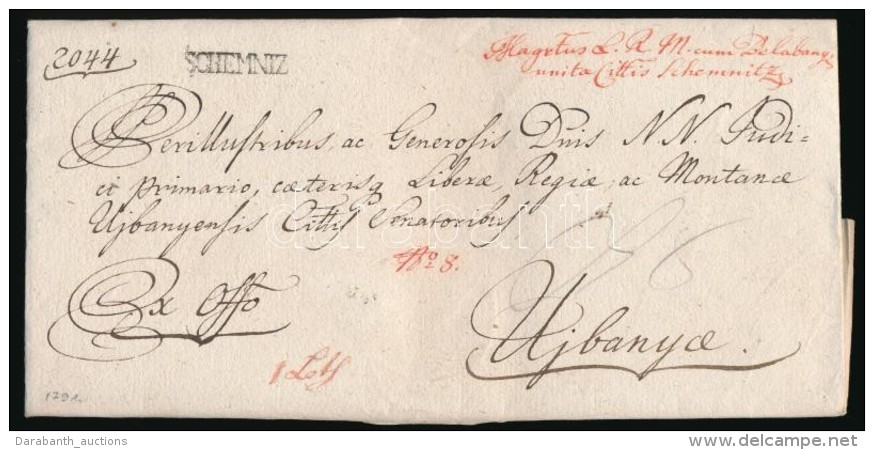 2044
SCHEMNIZ
Magrtus L. R. M. cum Belabany
unitæ Cittis Schemnitz
Perillustribus ac Generosis Dnis N N. Judi-
ci primario, cæterisq Liberæ, Regiæ, ac Montanæ
Ujbanyensis Cittis Senatoribus
No 8.
Ex Offo
Ujbanyæ.
1 Loth
darabanth
Darabanth_auctions
delcampe.net